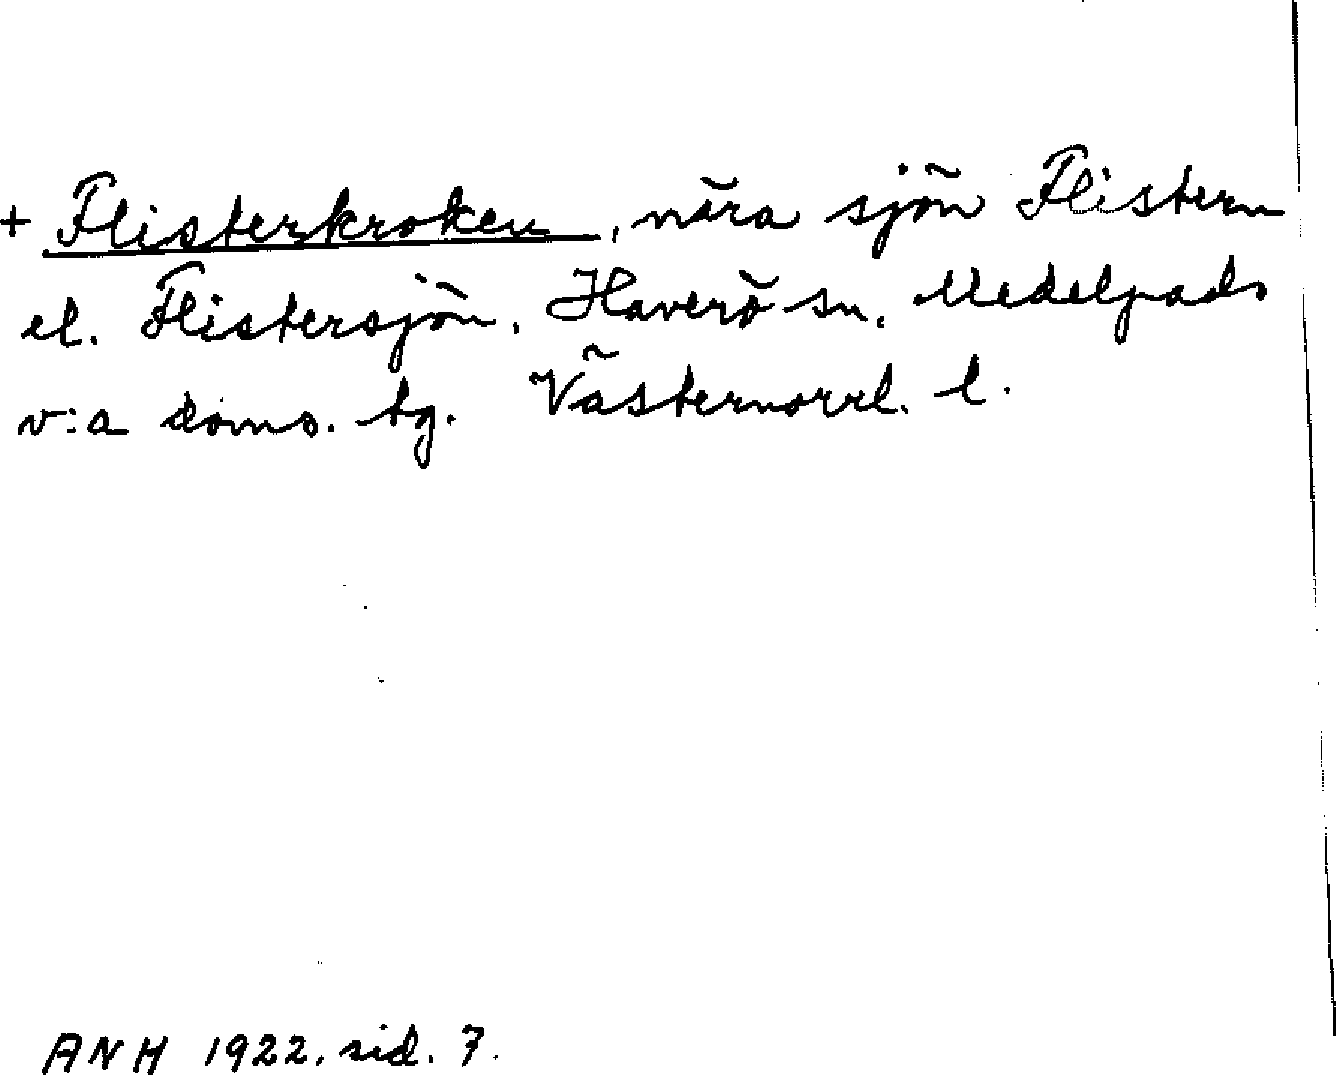 + Flisterkroken, nära sjön Flistern
el. Flistersjön, Haverö sn, Medelpads
v:a doms. tg. Västernorrl. l.
ANH 1922, sid. 7.